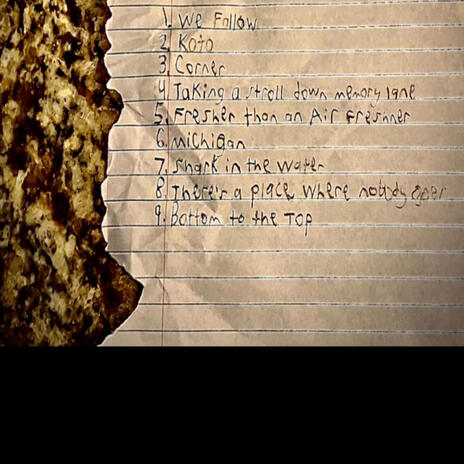 1. We Follow
2. Koto
3. Corner
4. Taking a stroll down memory lane
5. Fresher than an Air Freshner
6. Michigan
7. Shark in the water
8. There's a place where nobody
9. Bottom to the Top